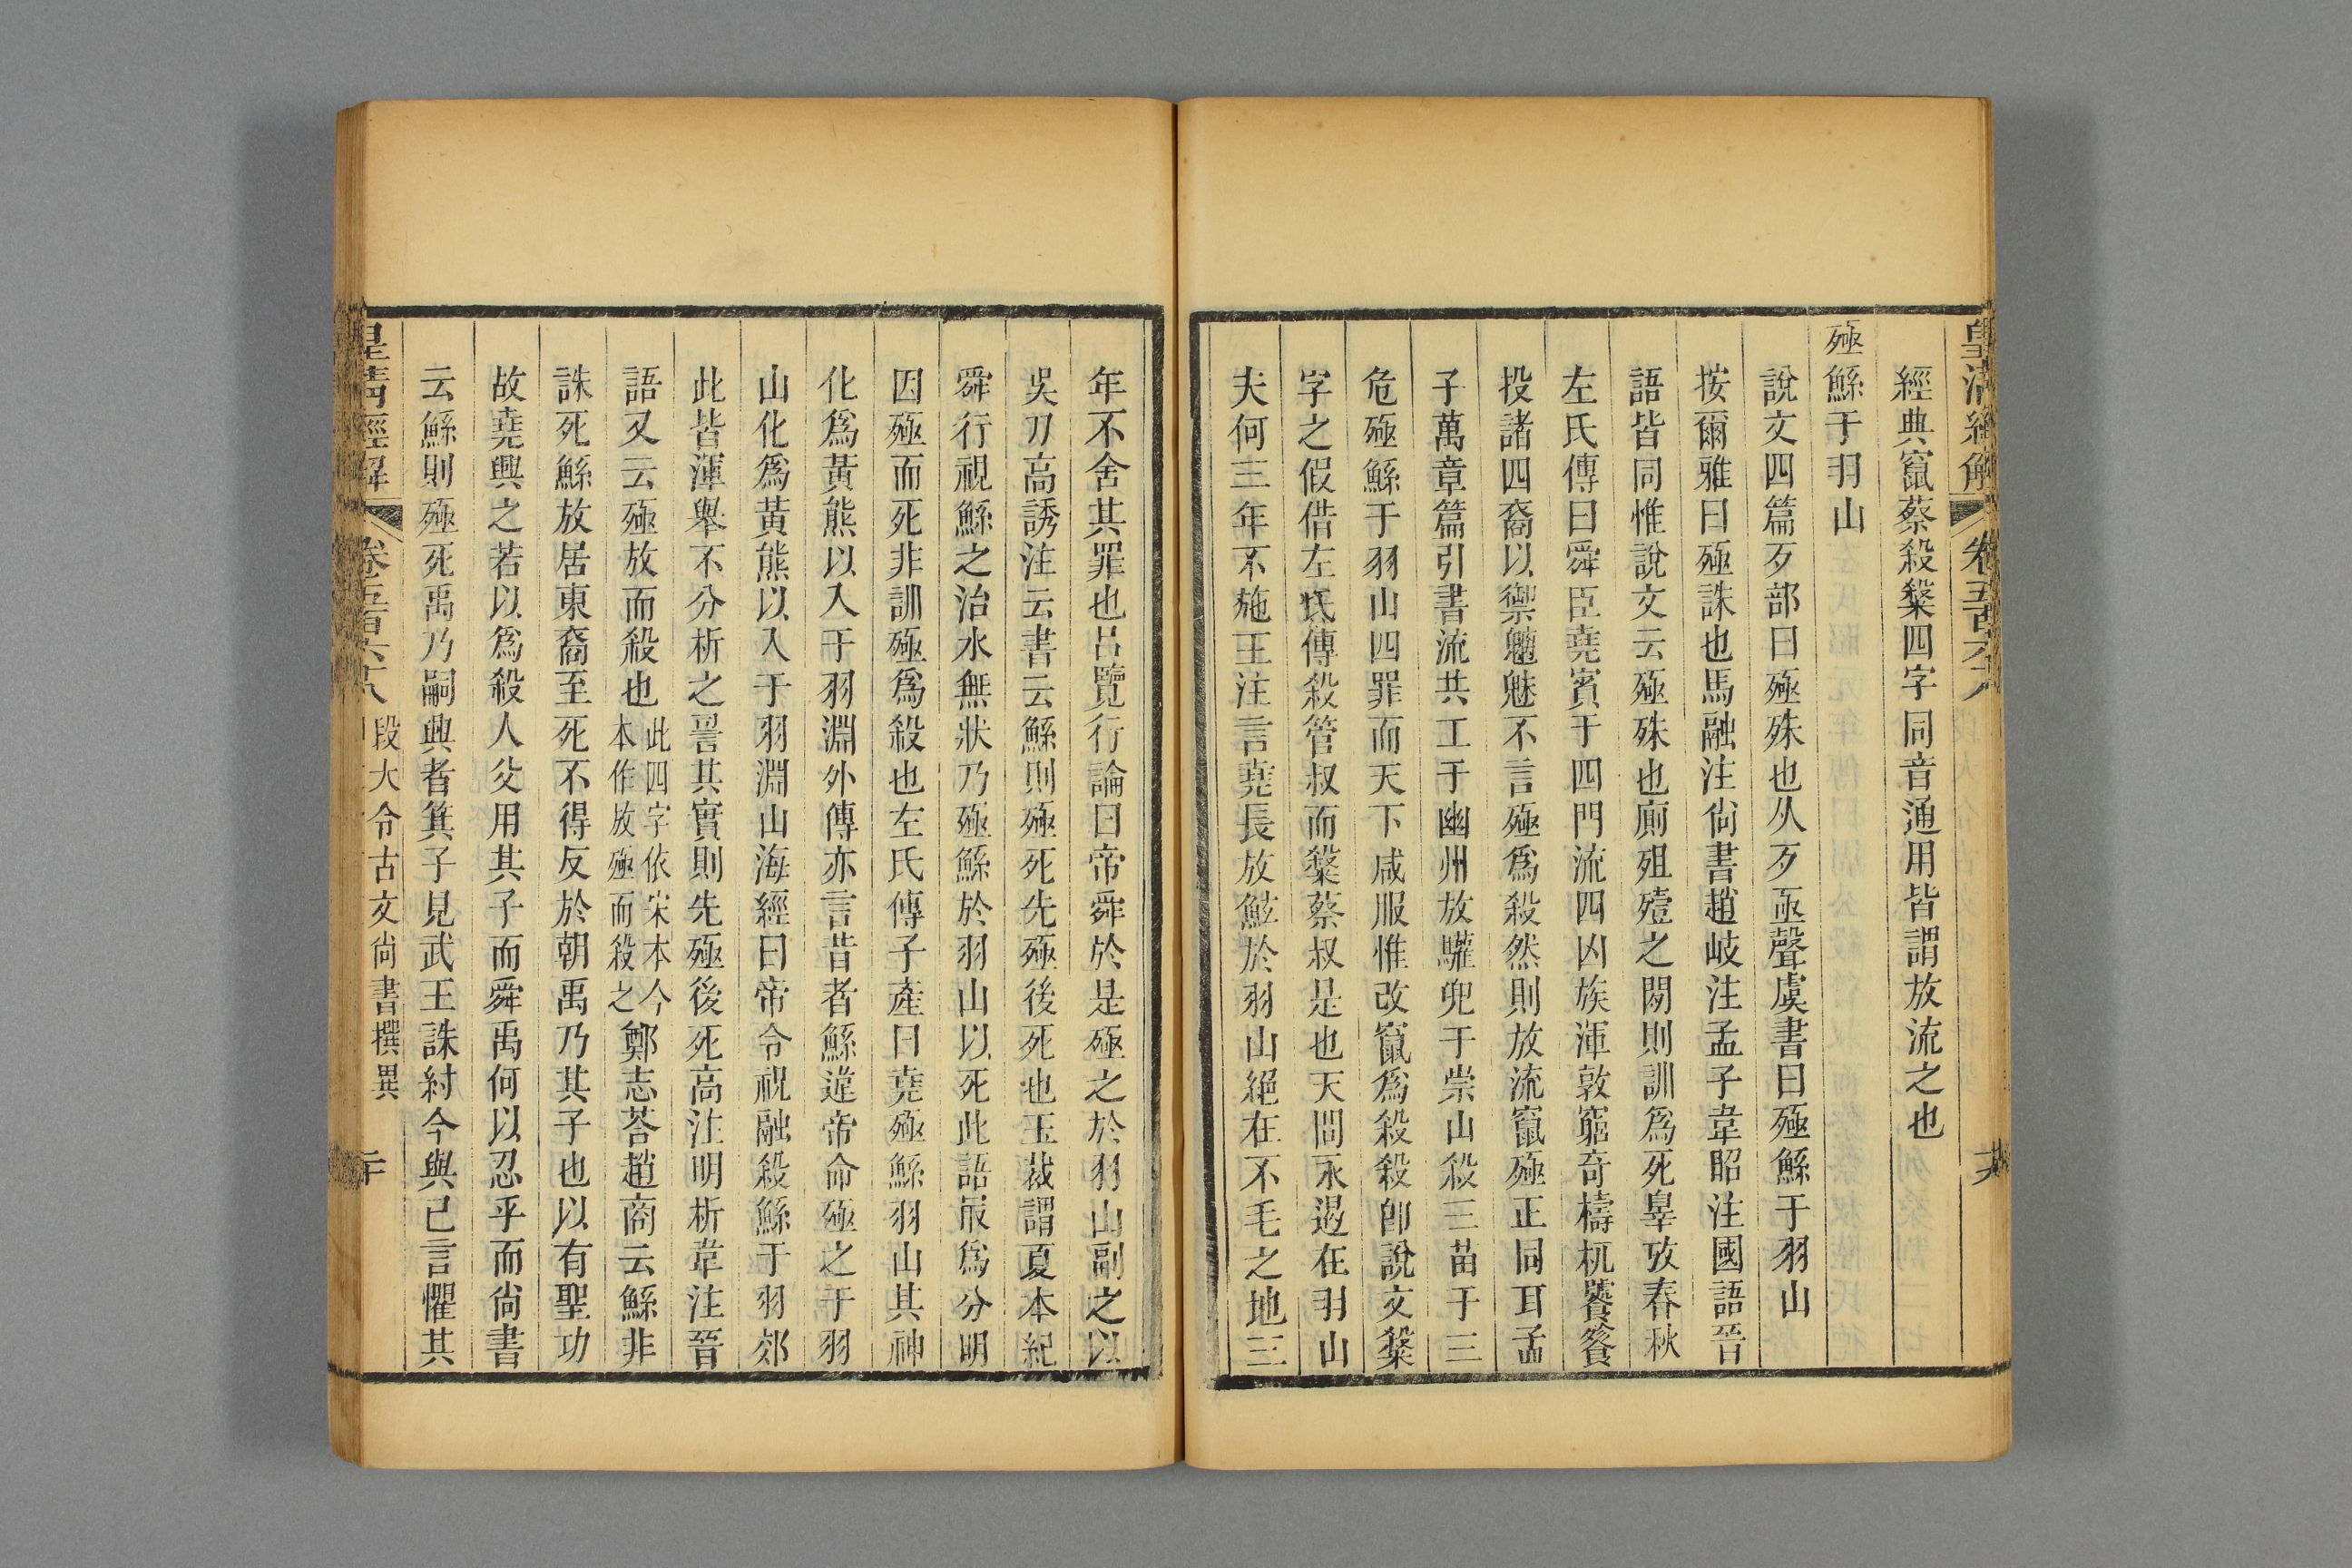 皇清經解 卷五百六十八 十九
經典竄蔡殺䊝四字同音通用皆謂放流之也
殛鯀于羽山
說文四篇歹部曰殛殊也从歹亟聲虞書曰殛鯀于羽山
按爾雅曰殛誅也馬融注尙書趙岐注孟子韋昭注國語晉
語皆同惟說文云殛殊也廁殂殪之閒則訓爲死辠攷春秋
左氏傳曰舜臣堯賓于四門流四凶族渾敦窮奇檮杌饕餮
投諸四裔以禦魑魅不言殛爲殺然則放流竄殛正同耳孟
子萬章篇引書流共工于幽州放驩兜于崇山殺三苗于三
危殛鯀于羽山四罪而天下咸服惟改竄爲殺殺卽說文䊝
字之假借左氏傳殺管叔而䊝蔡叔是也天問永遏在羽山
夫何三年不施王注言堯長放鮌於羽山絕在不毛之地三
年不舍其罪也呂覽行論曰帝舜於是殛之於羽山副之以
吳刀高誘注云書云鯀則殛死先殛後死也玉裁謂夏本紀
舜行視鯀之治水無狀乃殛鯀於羽山以死此語㝡爲分明
因殛而死非訓殛爲殺也左氏傳子產曰堯殛鯀羽山其神
化爲黃熊以入于羽淵外傳亦言昔者鯀違帝命殛之于羽
山化爲黃熊以入于羽淵山海經曰帝令祝融殺鯀于羽郊
此皆渾舉不分析之詈其實則先殛後死高注明析韋注晉
語又云殛放而殺也此四字依宋本今本作放殛而殺之鄭志荅趙商云鯀非
誅死鯀放居東裔至死不得反於朝禹乃其子也以有聖功
故堯興之若以爲殺人父用其子而舜禹何以忍乎而尙書
云鯀則殛死禹乃嗣興者箕子見武王誅紂今與己言懼其
皇清經解 卷五百六十八 段大令古文尙書撰異 二十